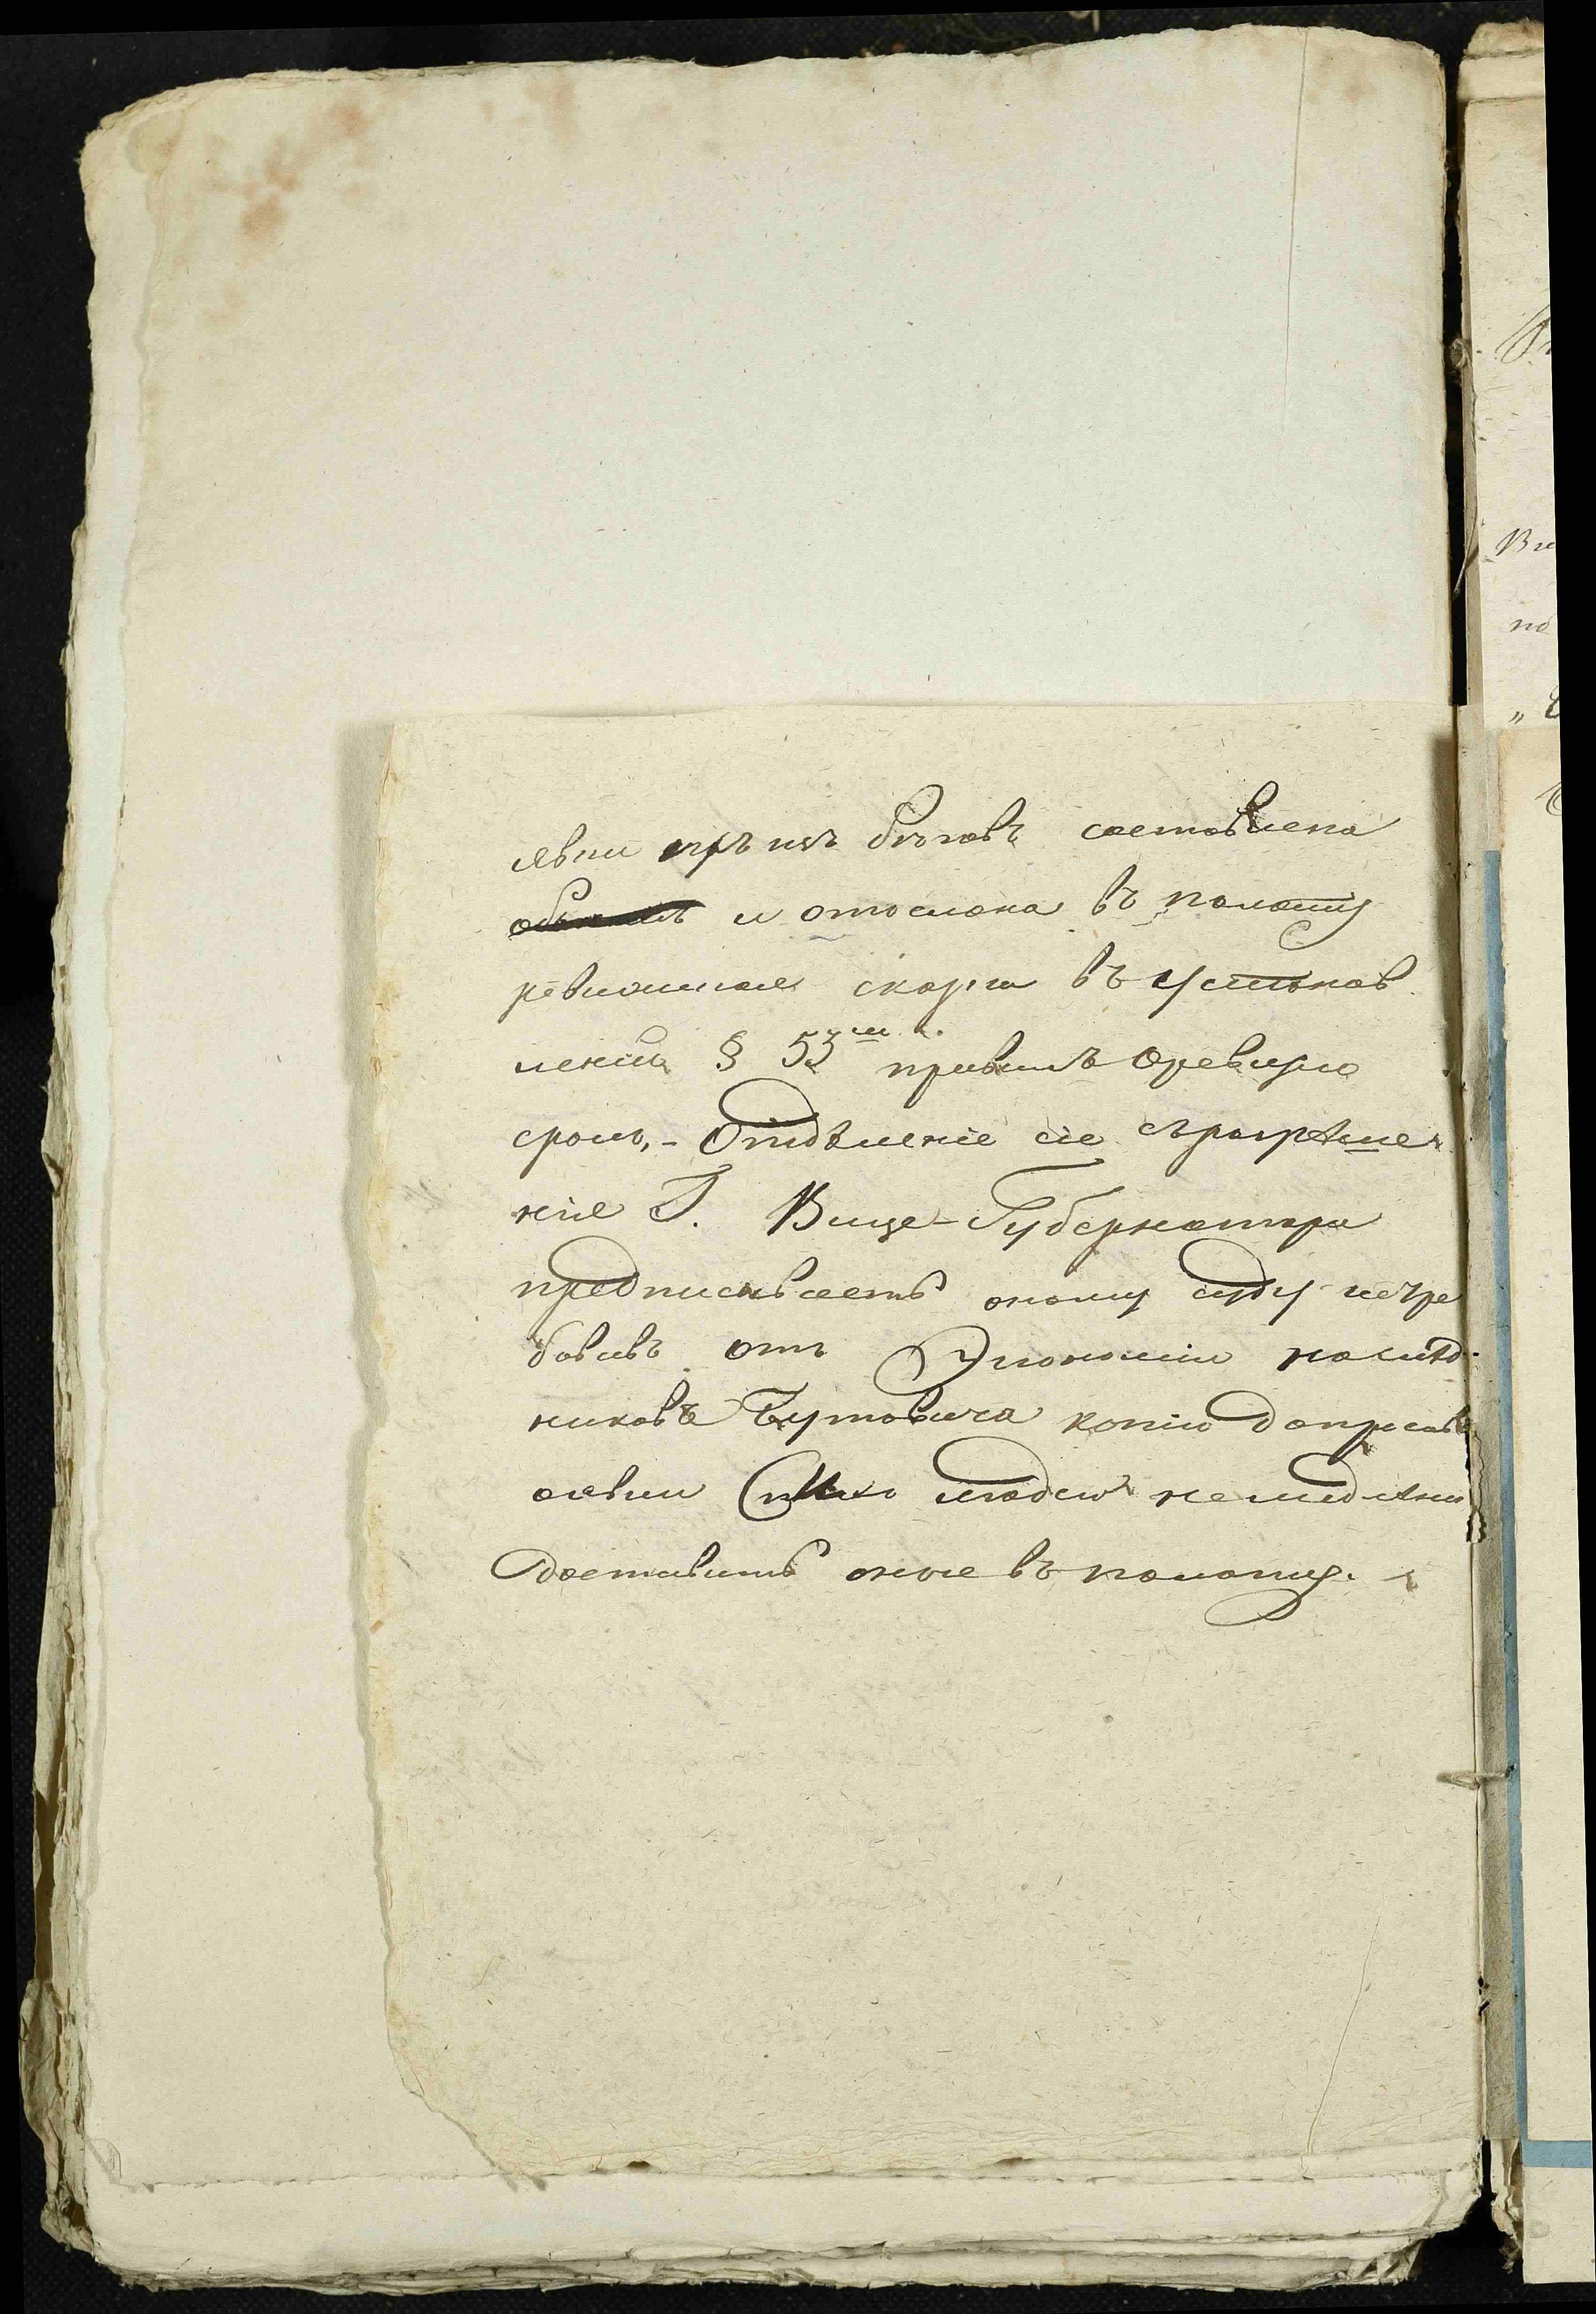 явки изъ бѣговъ составлена
и отослана въ палату
ревизская скаска въ установ
ленный § 53м правилъ о ревизіи
срокъ, - Отдѣленіе сіе съ разрѣше
нія Г. Вице-Губернатора
предписываетъ оному суду истре
бовавъ отъ Экономіи наслѣд
никовъ Бутовича копію допроса
о явки сихъ людей немедлѣнно
доставить оные въ палату.